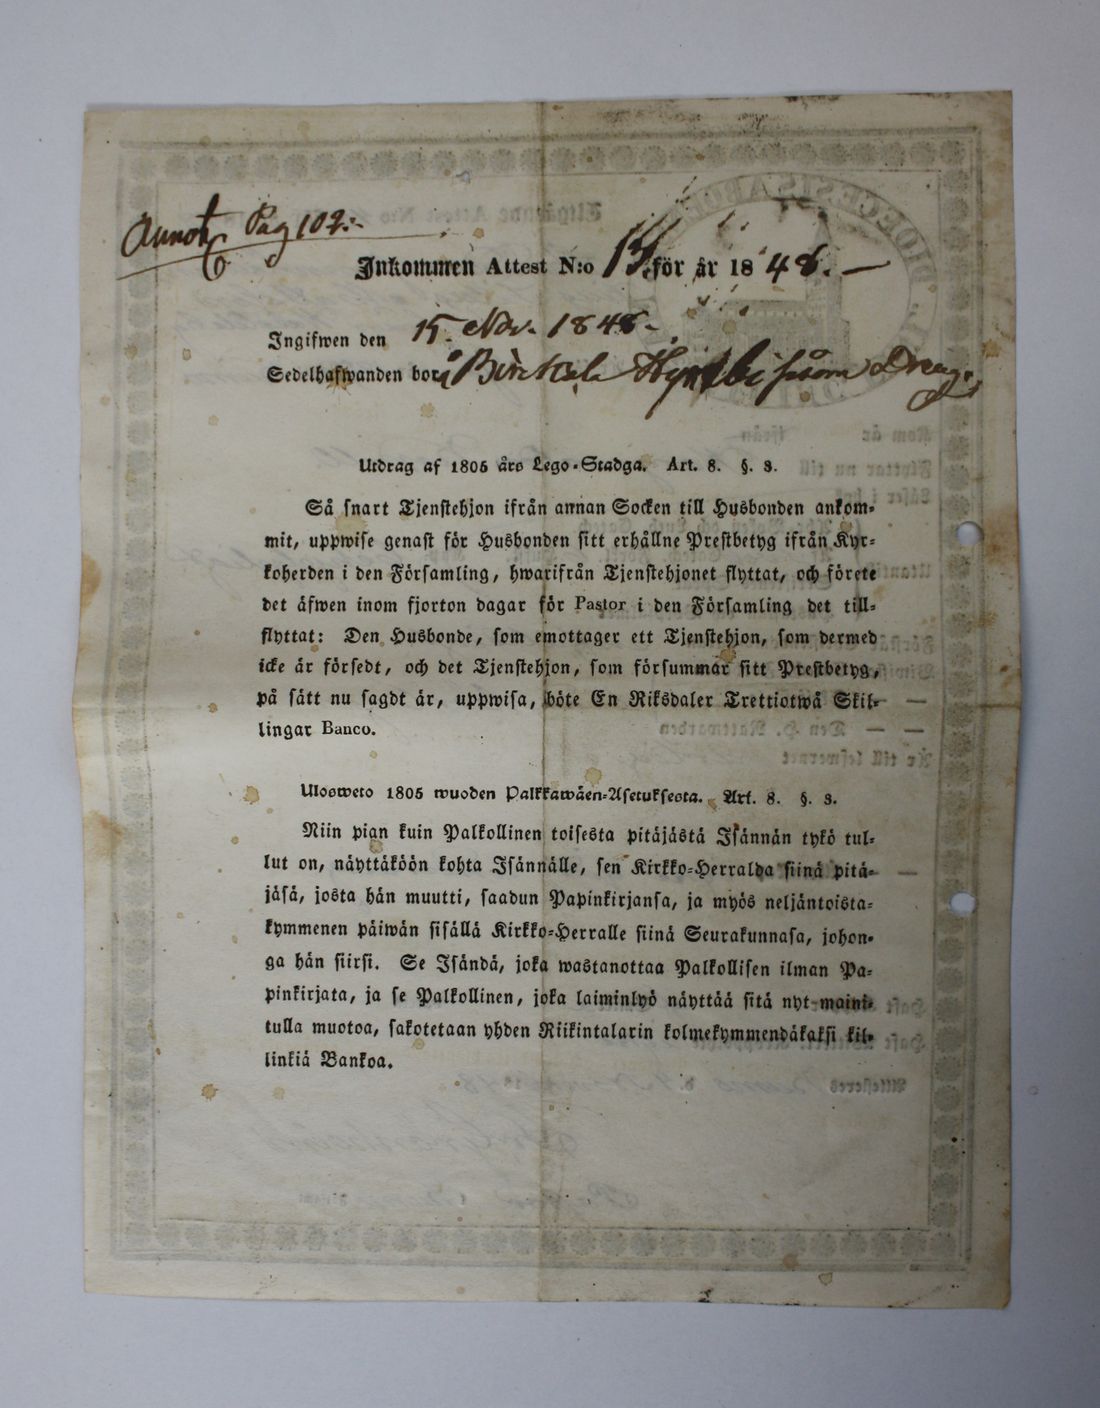 Annot. Pag 102.
Inkommen Attest N:o 15. för år 1848.
Ingifwen den 15. Nov. 1848.
Sedelhafwanden bor å Birkala såsom Dreng.
Utdrag af 1805 års Lego-Stadga. Art. 8. §. 3.
Så snart Tjenstehjon ifrån annan Socken till Husbonden ankom-
mit, uppwise genast för Husbonden sitt erhållne Prestbetyg ifrån Kyr-
koherden i den Församling, hwarifrån Tjenstehjonet flyttat, och förete
det äfwen inom fjorton dagar för Pastor i den Församling det till-
flyttat: Den Husbonde, som emottager ett Tjenstehjon, som dermed
icke är försedt, och det Tjenstehjon, som försummar sitt Prestbetyg,
på sätt nu sagdt är, uppwisa, böte En Riksdaler Trettiotwå Skil-
lingar Banco.
Ulosweto 1805 wuoden Palkkawäen-Asetuksesta. Art. 8. §. 3.
Niin pian kuin Palkollinen toisesta pitäjästä Isännän tykö tul-
lut on, näyttäköön kohta Isännälle, sen Kirkko-Herralda siinä pitä-
jäsä, josta hän muutti, saadun Papinkirjansa, ja myös neljäntoista-
kymmenen päiwän sisällä Kirkko-Herralle siinä Seurakunnasa, johon-
ga hän siirsi. Se Isändä, joka wastanottaa Palkollisen ilman Pa-
pinkirjata, ja se Palkollinen, joka laiminlyö näyttää sitä nyt maini-
tulla muotoa, sakotetaan yhden Riikintalarin kolmekymmendäkaksi kil-
linkiä Bankoa.